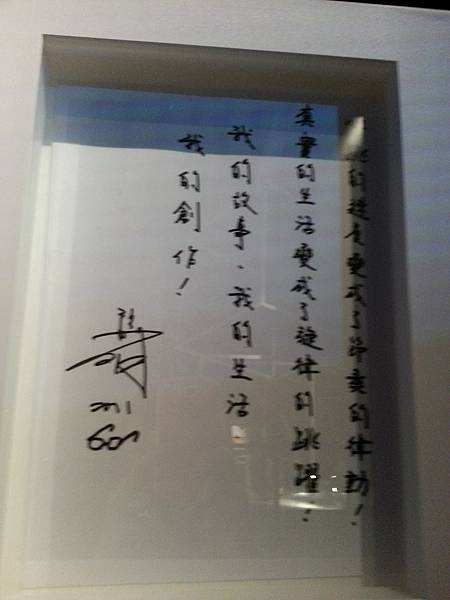 跳的速度變成了節奏的律動！
真實的生活變成了旋律的跳躍！
我的故事、我的生活
我的創作！